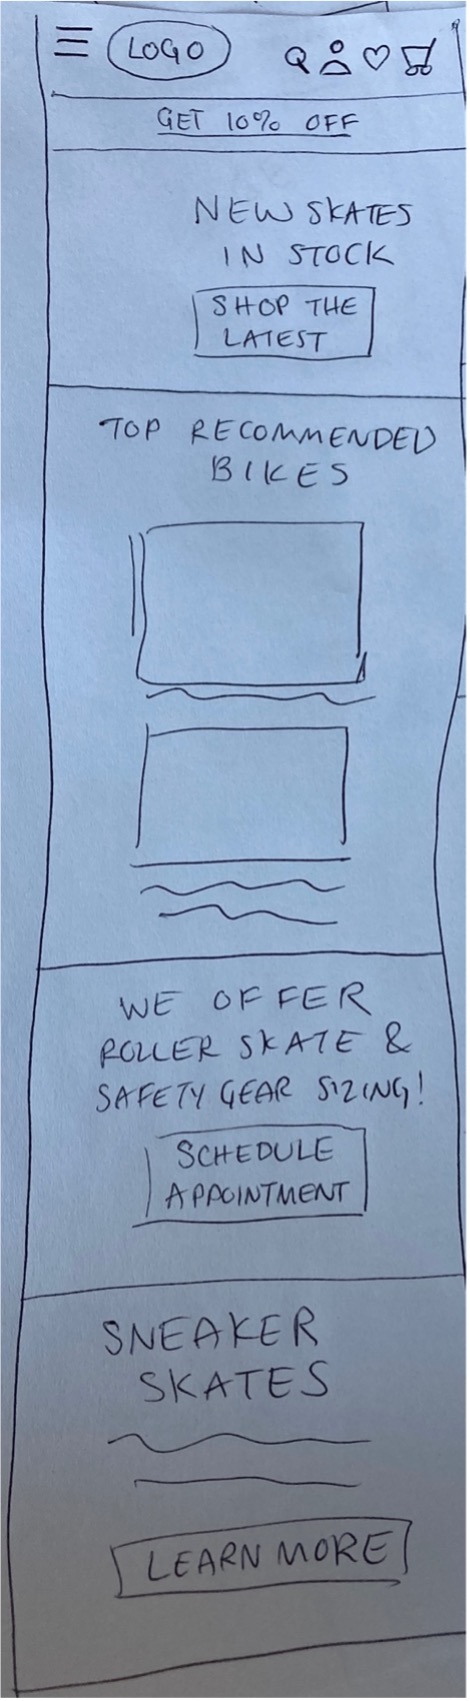 LOGO
GET 10% OFF
NEW SKATES
IN STOCK
SHOP THE
LATEST
TOP RECOMMENDED
BIKES
WE OFFER
ROLLER SKATE &
SAFETY GEAR SIZING!
SCHEDULE
APPOINTMENT
SNEAKER
SKATES
LEARN MORE